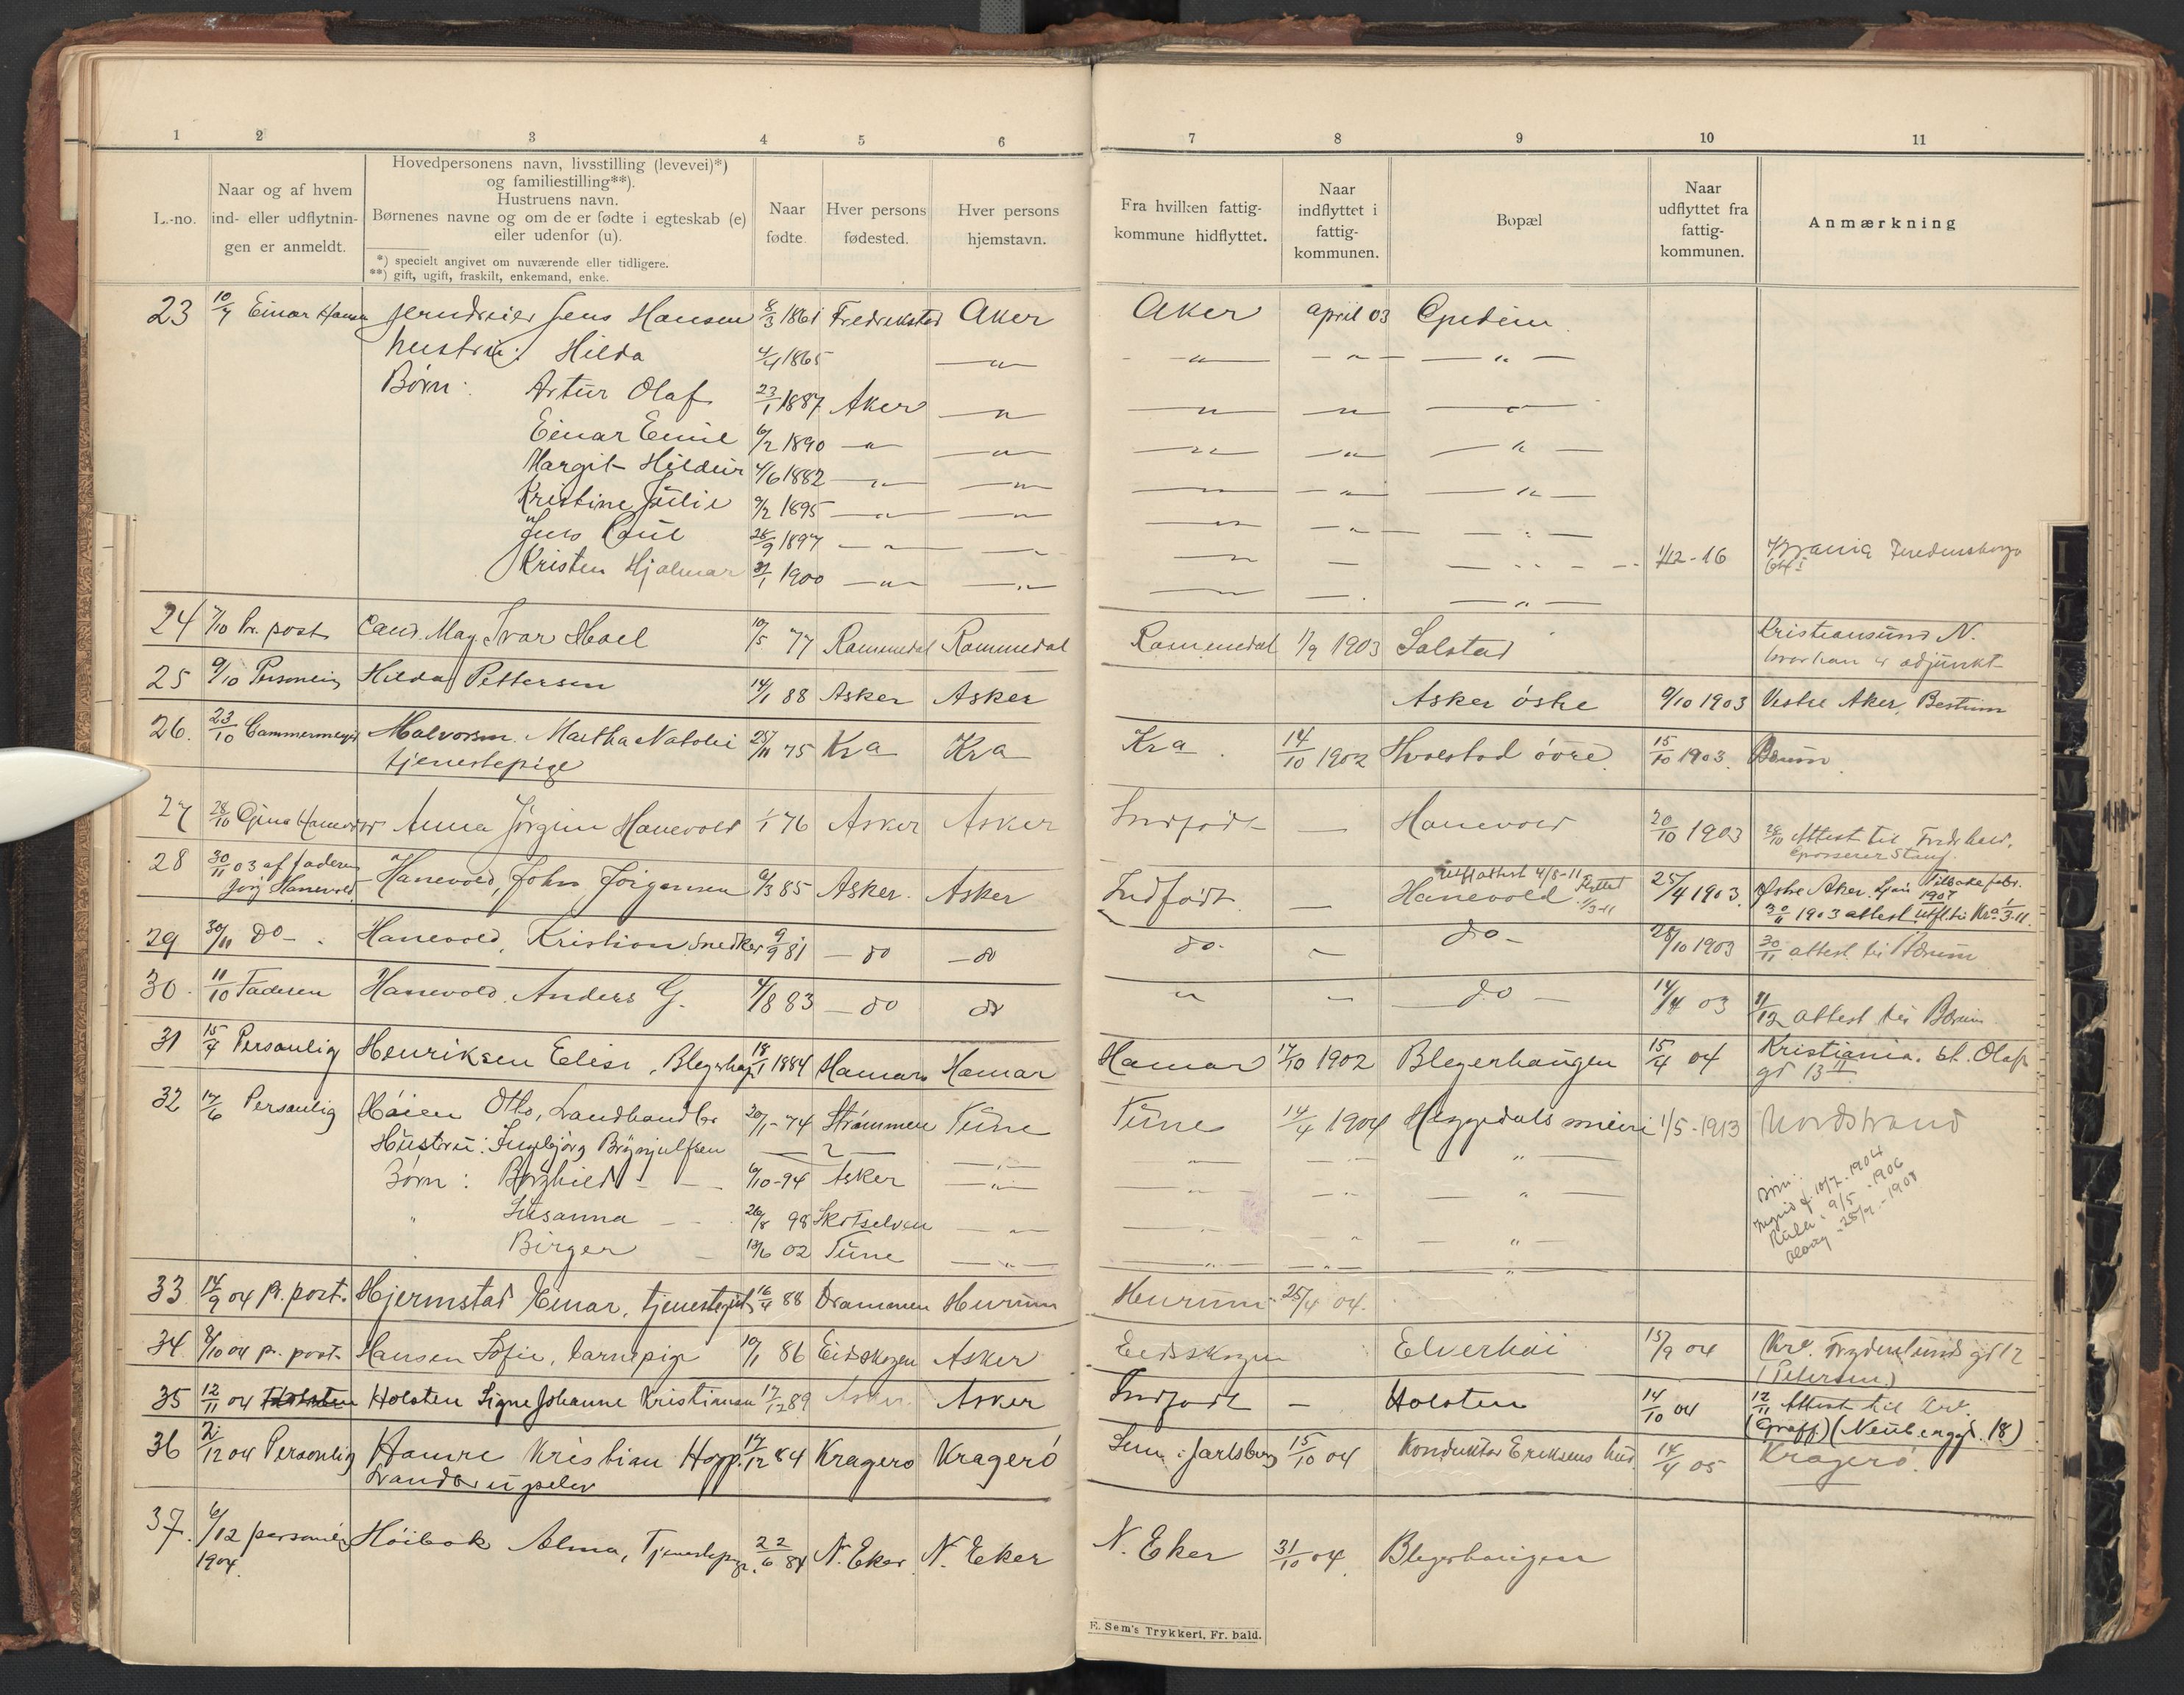 1 2 3 4 5 6 7 8 9 10 11
L.-no.
Naar og af hvem
ind- eller udflytnin-
gen er anmeldt.
Hovedpersonens navn, livsstilling (levevei)*)
og familiestilling**).
Hustruens navn.
Børnenes navne og om de er fødte i egteskab (e)
eller udenfor (u).
*) specielt angivet om nuværende eller tidligere.
**) gift, ugift, fraskilt, enkemand, enke.
Naar
fødte.
Hver persons
fødested.
Hver persons
hjemstavn.
Fra hvilken fattig-
kommune hidflyttet.
Naar
indflyttet i
fattig-
kommunen.
Bopæl
Naar
udflyttet fra
fattig-
kommunen.
Anmærkning
23 10/7 Einar Hansen Jens Hansen 8/3 1861 Fredrikstad Aker Aker april 03
hustru: Hilda 4/4 1865 — " — — " — — " — — " —
Børn: Artur Olaf 23/1 1887 Aker — " — — " — — " — — " —
Einar Emil 6/2 1890 — " — — " — — " — — " — — " —
Margit Hildur 4/6 1882 — " — — " — — " — — " — — " —
Kristine Julie 9/2 1895 — " — — " — — " — — " — — " —
Jens Paul 28/9 1897 — " — — " — — " — 1/12-16
Kristen Hjalmar 31/1 1900 — " — — " — — " — — " —
24 7/10 Pr. post Cand. Mag. Ivar Moel 10/5 77 Rommedal Rommedal Rommedal 1/9 1903 Solstad Kristiansund N.
hvor han er adjunkt
25 9/10 Personlig Hilda Pettersen 14/1 88 Asker Asker Asker østre 9/10 1903 Vestre Aker, Bestum
26. 23/10 Cammermeyer Halvorsen. Martha Natalie 25/11 75 Kra Kra Kra. 14/10 1902 Hvalstad övre 15/10 1903. Bærum
tjenestepige
27 28/10 Gina Hanevold Anna Jørgine Hanevold 1/1 76 Asker Asker Indfødt — Hanevold 20/10 1903 28/10 Attest til Fredr.hald,
28 30/11 03 af faderen
Jørg Hanevold Hanevold, John Jörgensen 6/3 85 Asker. Asker Indfödt — Hanevold Flyttet 1/3-11 25/4 1903. Østre Aker. Tilbake febr. 1907
attest 4/3-11
30/11 1903 attest utfl. til Kra. 1/3-11.
29 30/11 do - Hanevold, Kristian Snedker 9/9 81 — do — do do - do - 28/10 1903 30/11 attest til Bærum
30. 11/10 Faderen Hanevold, Anders G. 4/8 83 — do do " " do — 14/4 03 11/12 attest til Bærum
31 15/4 Personlig Henriksen Elise, 18/1 1884 Hamar Hamar Hamar 17/10 1902 Blegerhaugen 15/4 04 Kristiania. St. Olafs
gd 13 II
32 17/6 Personlig Høien Otto, Landhandler 20/1-74 Strømmen Tune Tune 14/4 1904 Heggedals 1/5-1913 Nordstrand
Hustru: Ingebjörg Brynjulfsen — ? — — " — — " — — " — — " —
Børn: Borghild — 6/10-94 Asker — " — — " — — " — — " —
Susanna — 26/8 98 Skotselven — " —
Birger — 13/6 02 Tune — " — — " — — " —
Børn:
Ingrid f. 10/7. 1904
9/5 - 1906
- 1908
33 14/9 04 p. post. Hjermstad Einar, tjenestegut 16/4 88 Drammen Hurum Hurum 25/4 04.
34. 8/10 04 p. post. Hansen Sofie, barnepige 10/1 86 Eidskogen Asker Eidskogen Elverhöi 15/9 04 Kra. Frydenlunds gd 12
(Petersen)
35 12/11 04 Holsten Signe Johanne Kristiansen 17/12 89 Asker Asker Indfødt — Holsten 14/10 04 12/11 Attest til Kra.
(Graff) (Neuberggd. 18)
36 2/12 04 Personlig Hamre Kristian Hopp. 17/12 84 Kragerø Kragerö Sem i Jarlsberg 15/10 04 Konduktør Eriksens hus 14/4 05 Kragerö.
Landbrugselev
37. 6/12 personlig
1904. Høibak Alma, Tjenestepige. 22/6 84 N. Eker. N. Eker N. Eker 31/10 04. Blegerhaugen
E. Sem's Trykkeri, Fr.hald.